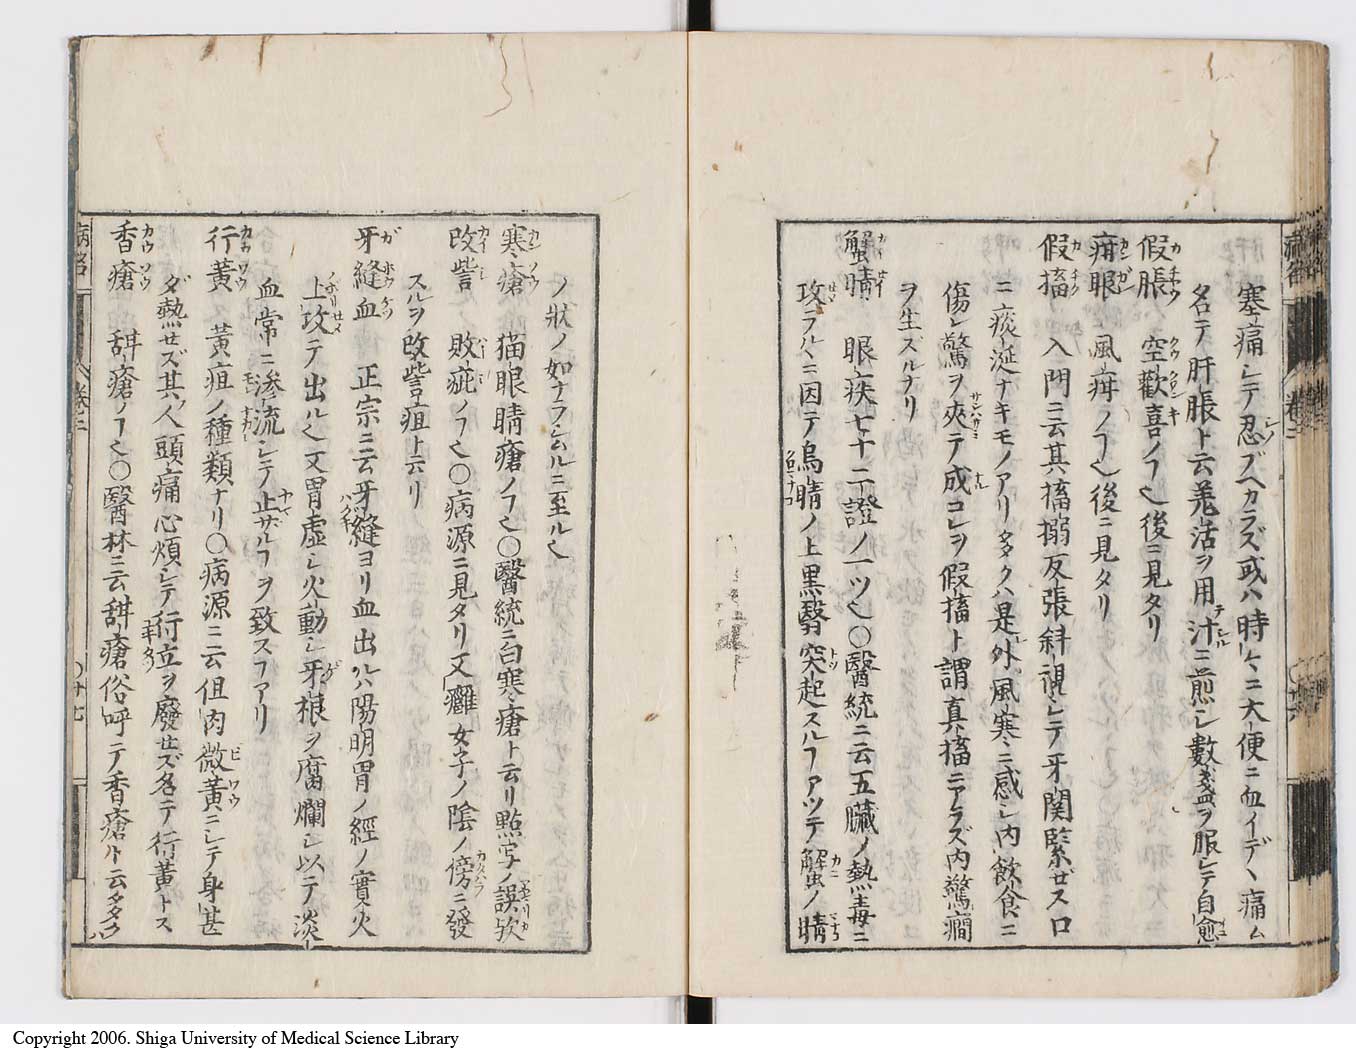 塞痛乄テ忍ブヘカラズ或ハ時〻ニ大便ニ血イデヽ痛ム
名テ肝脹ト云羗活ヲ用汁ニ煎乄數盞ヲ服乄テ自愈
假脹 空歡喜ノヿ也後ニ見タリ
疳眼 風疳ノヿ也後ニ見タリ
假搐 入門ニ云其搐搦反張斜視乄テ牙関緊ゼス口
ニ痰涎ナキモノアリ多クハ是外風寒ニ感乄内飲食ニ
傷レ驚ヲ夾テ成コレヲ假搐ト謂真搐ニアラズ内驚癇
ヲ生ズルナリ
蟹睛 眼疾七十二證ノ一ツ也〇醫統ニ云五臓ノ熱毒ニ
攻ラルヽニ因テ烏睛ノ上黒翳突起スルヿアツテ蟹ノ睛
ノ狀ノ如ナラシムルニ至ル也
寒瘡 猫眼睛瘡ノヿ也〇醫統ニ白寒瘡ト云リ點字ノ誤欤
改訾 敗疵ノヿ也〇病源ニ見タリ又癰女子ノ陰ノ傍ニ發
スルヲ改訾疽ト云リ
牙縫血 正宗ニ云牙縫ヨリ血出ルハ陽明胃ノ經ノ實火
上攻テ出ル也又胃虚乄火動乄牙根ヲ腐爛乄以テ淡
血常ニ滲流乄テ止ザルヿヲ致スヿアリ
行黄 黄疸ノ種類ナリ〇病源ニ云但肉微黄ニ乄テ身甚
ダ熱セズ其人頭痛心煩乄テ行立ヲ廢セズ名テ行黄トス
香瘡 甜瘡ノヿ也〇醫林ニ云甜瘡俗呼テ香瘡ト云多クハ
病名
卷二
〇廿七
〇廿六
Copyright 2006. Shiga University of Medical Science Library